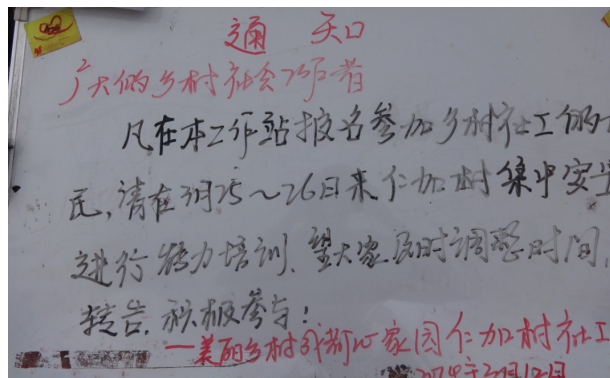 通 知
广大的乡村社会工作者
凡在本工作站报名参加乡村社工的
民,请在3月25~26日来仁加村集中安
进行能力培训、望大家及时调整时间,
转告,积极参与!
—美丽乡村 家园仁加村社工